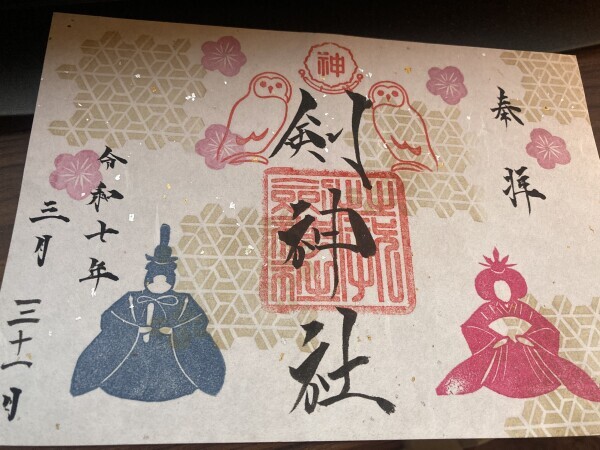 奉拝
神
剣神社
令和七年
三月三十一日